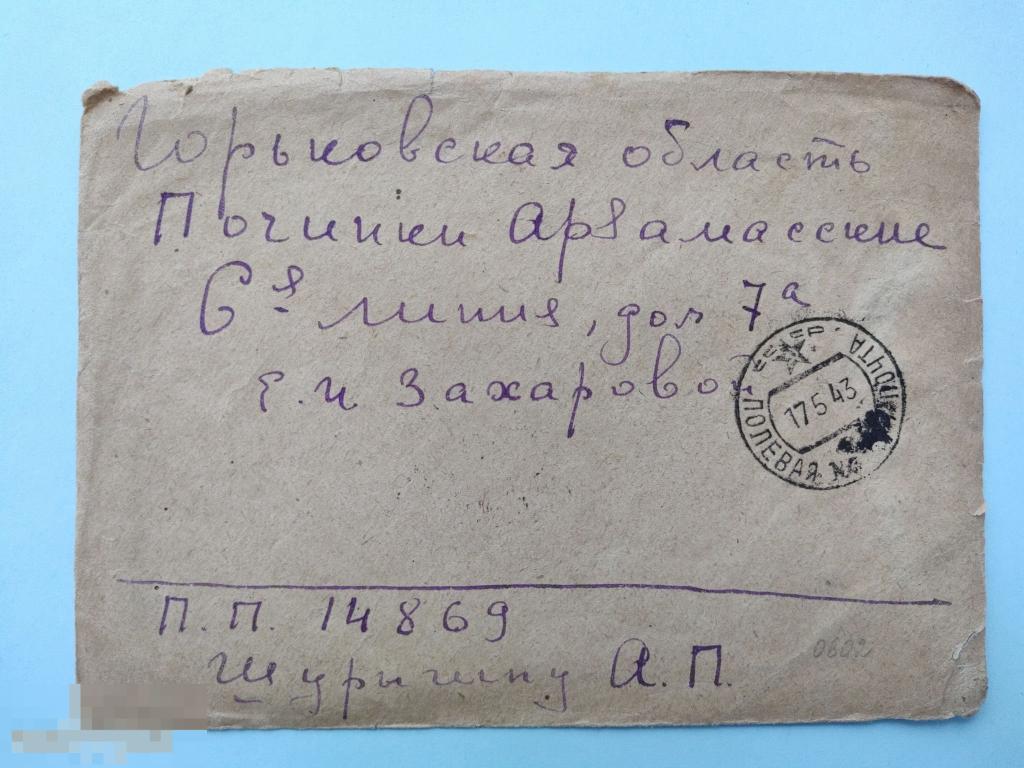 Горьковская область
Починки Арзамасские
6я линия, дом 7а
Е.И Захаровой
СССР
ПОЛЕВАЯ ПОЧТА №
17 5 43
П.П. 14869
Шурыгину А.П.
0602